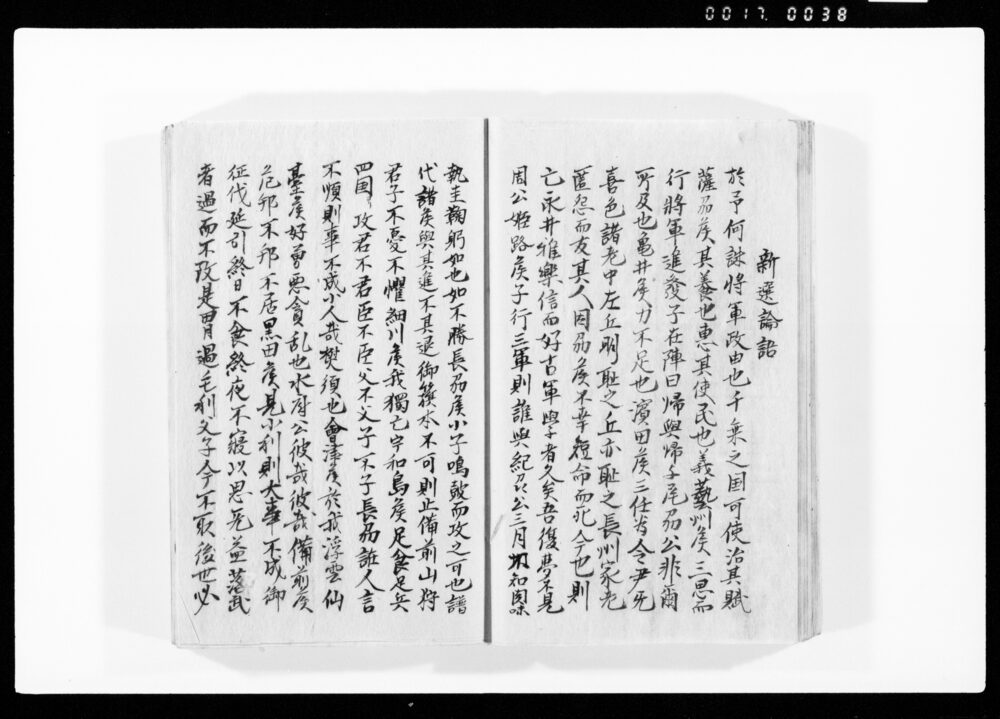 0017. 0038
新選論語
於予何誅将軍政由也千乗之国可使治其賦
薩州侯其養也恵其使民也義藝州侯三思而
行将軍進發子在陣曰帰與帰与尾州公非爾
所及也亀井侯力不足也濱田侯三仕為令尹无
喜色諸老中左丘明耻之丘亦耻之長州家老
匿怨而友其人因州侯不幸短命而死今也則
亡永井雅樂信而好古軍学者久矣吾復夢不見
周公姫路侯子行三軍則誰與紀州公三月不知肉味
執圭鞠躬如也如不勝長州侯小子鳴鼓而攻之可也諸
代諸侯與其進不其退御簱本不可則止備前山狩
君子不憂不懼細川侯我獨亡宇和島侯足食足兵
四国攻君不君臣不臣父不父子不子長州誰人言
不順則事不成小人哉樊須也會津侯於我浮雲仙
臺侯好勇悪貧乱也水府公彼哉彼哉備前侯
危邦不邦不居黒田侯見小利則大事不成御
征伐延引終日不食終夜不寝以思无益落武
者過而不改是謂過毛利父子今不取後世必